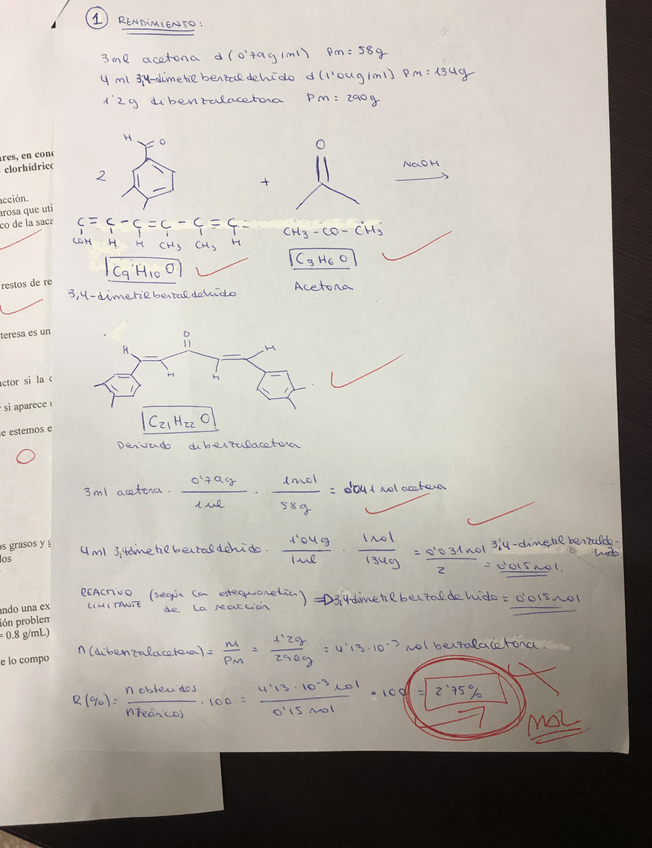 1 RENDIMIENTO:
3ml acetona d(0'79g/ml) Pm=58g
4 ml 3,4-dimetilbenzaldehído d(1'04g/ml) Pm=134g
1'2g dibenzalacetona Pm=290g
H O
O
2 + NaOH
C=C-C=C-C=C-
COH H H CH3 CH3 H
CH3-CO-CH3
C9H10O
C3H6O
3,4-dimetilbenzaldehído
Acetona
O
H H
H H
C21H22O
Derivado dibenzalacetona
3ml acetona · 0'79g / 1ml · 1mol / 58g = 0'041 mol acetona
4ml 3,4dimetilbenzaldehído · 1'04g / 1ml · 1mol / 134g = 0'031mol / 2 3,4-dimetilbenzaldehído = 0'015mol.
REACTIVO LIMITANTE (según la estequiometria de la reacción) => 3,4dimetilbenzaldehído = 0'015mol
n(dibenzalacetona) = m / PM = 1'2g / 290g = 4'13·10-3 mol benzalacetona.
R(%) = n obtenidos / nteóricos · 100 = 4'13·10-3 mol / 0'15 mol · 100 = 2'75%
MAL
ares, en con
clorhídric
acción.
arosa que uti
co de la saca
restos de re
teresa es un
actor si la c
si aparece
e estemos e
os grasos y g
los
ando una ex
ión problem
= 0.8 g/mL)
e lo compo